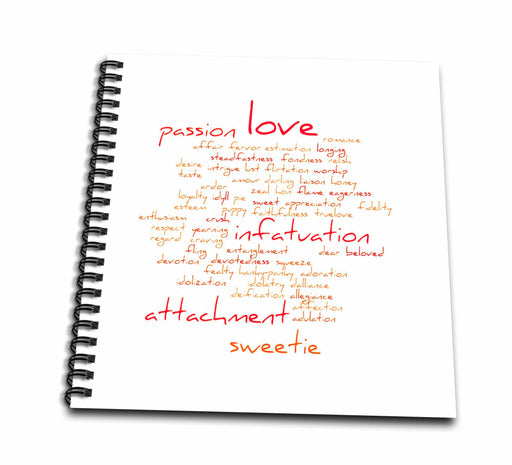 passion love
romance
affair fervor estimation longing
steadfastness fondness relish
desire intrigue lust flirtation worship
taste
amour darling liaison honey
ardor zeal hon flame eagerness
loyalty idyll pie sweet appreciation fidelity
esteem puppy faithfulness truelove
enthusiasm crush
respect yearning infatuation
regard craving
fling entanglement dear beloved
devotion devotedness squeeze
fealty hanky-panky adoration
idolization idolatry dalliance
deification allegiance
attachment affection
adulation
sweetie